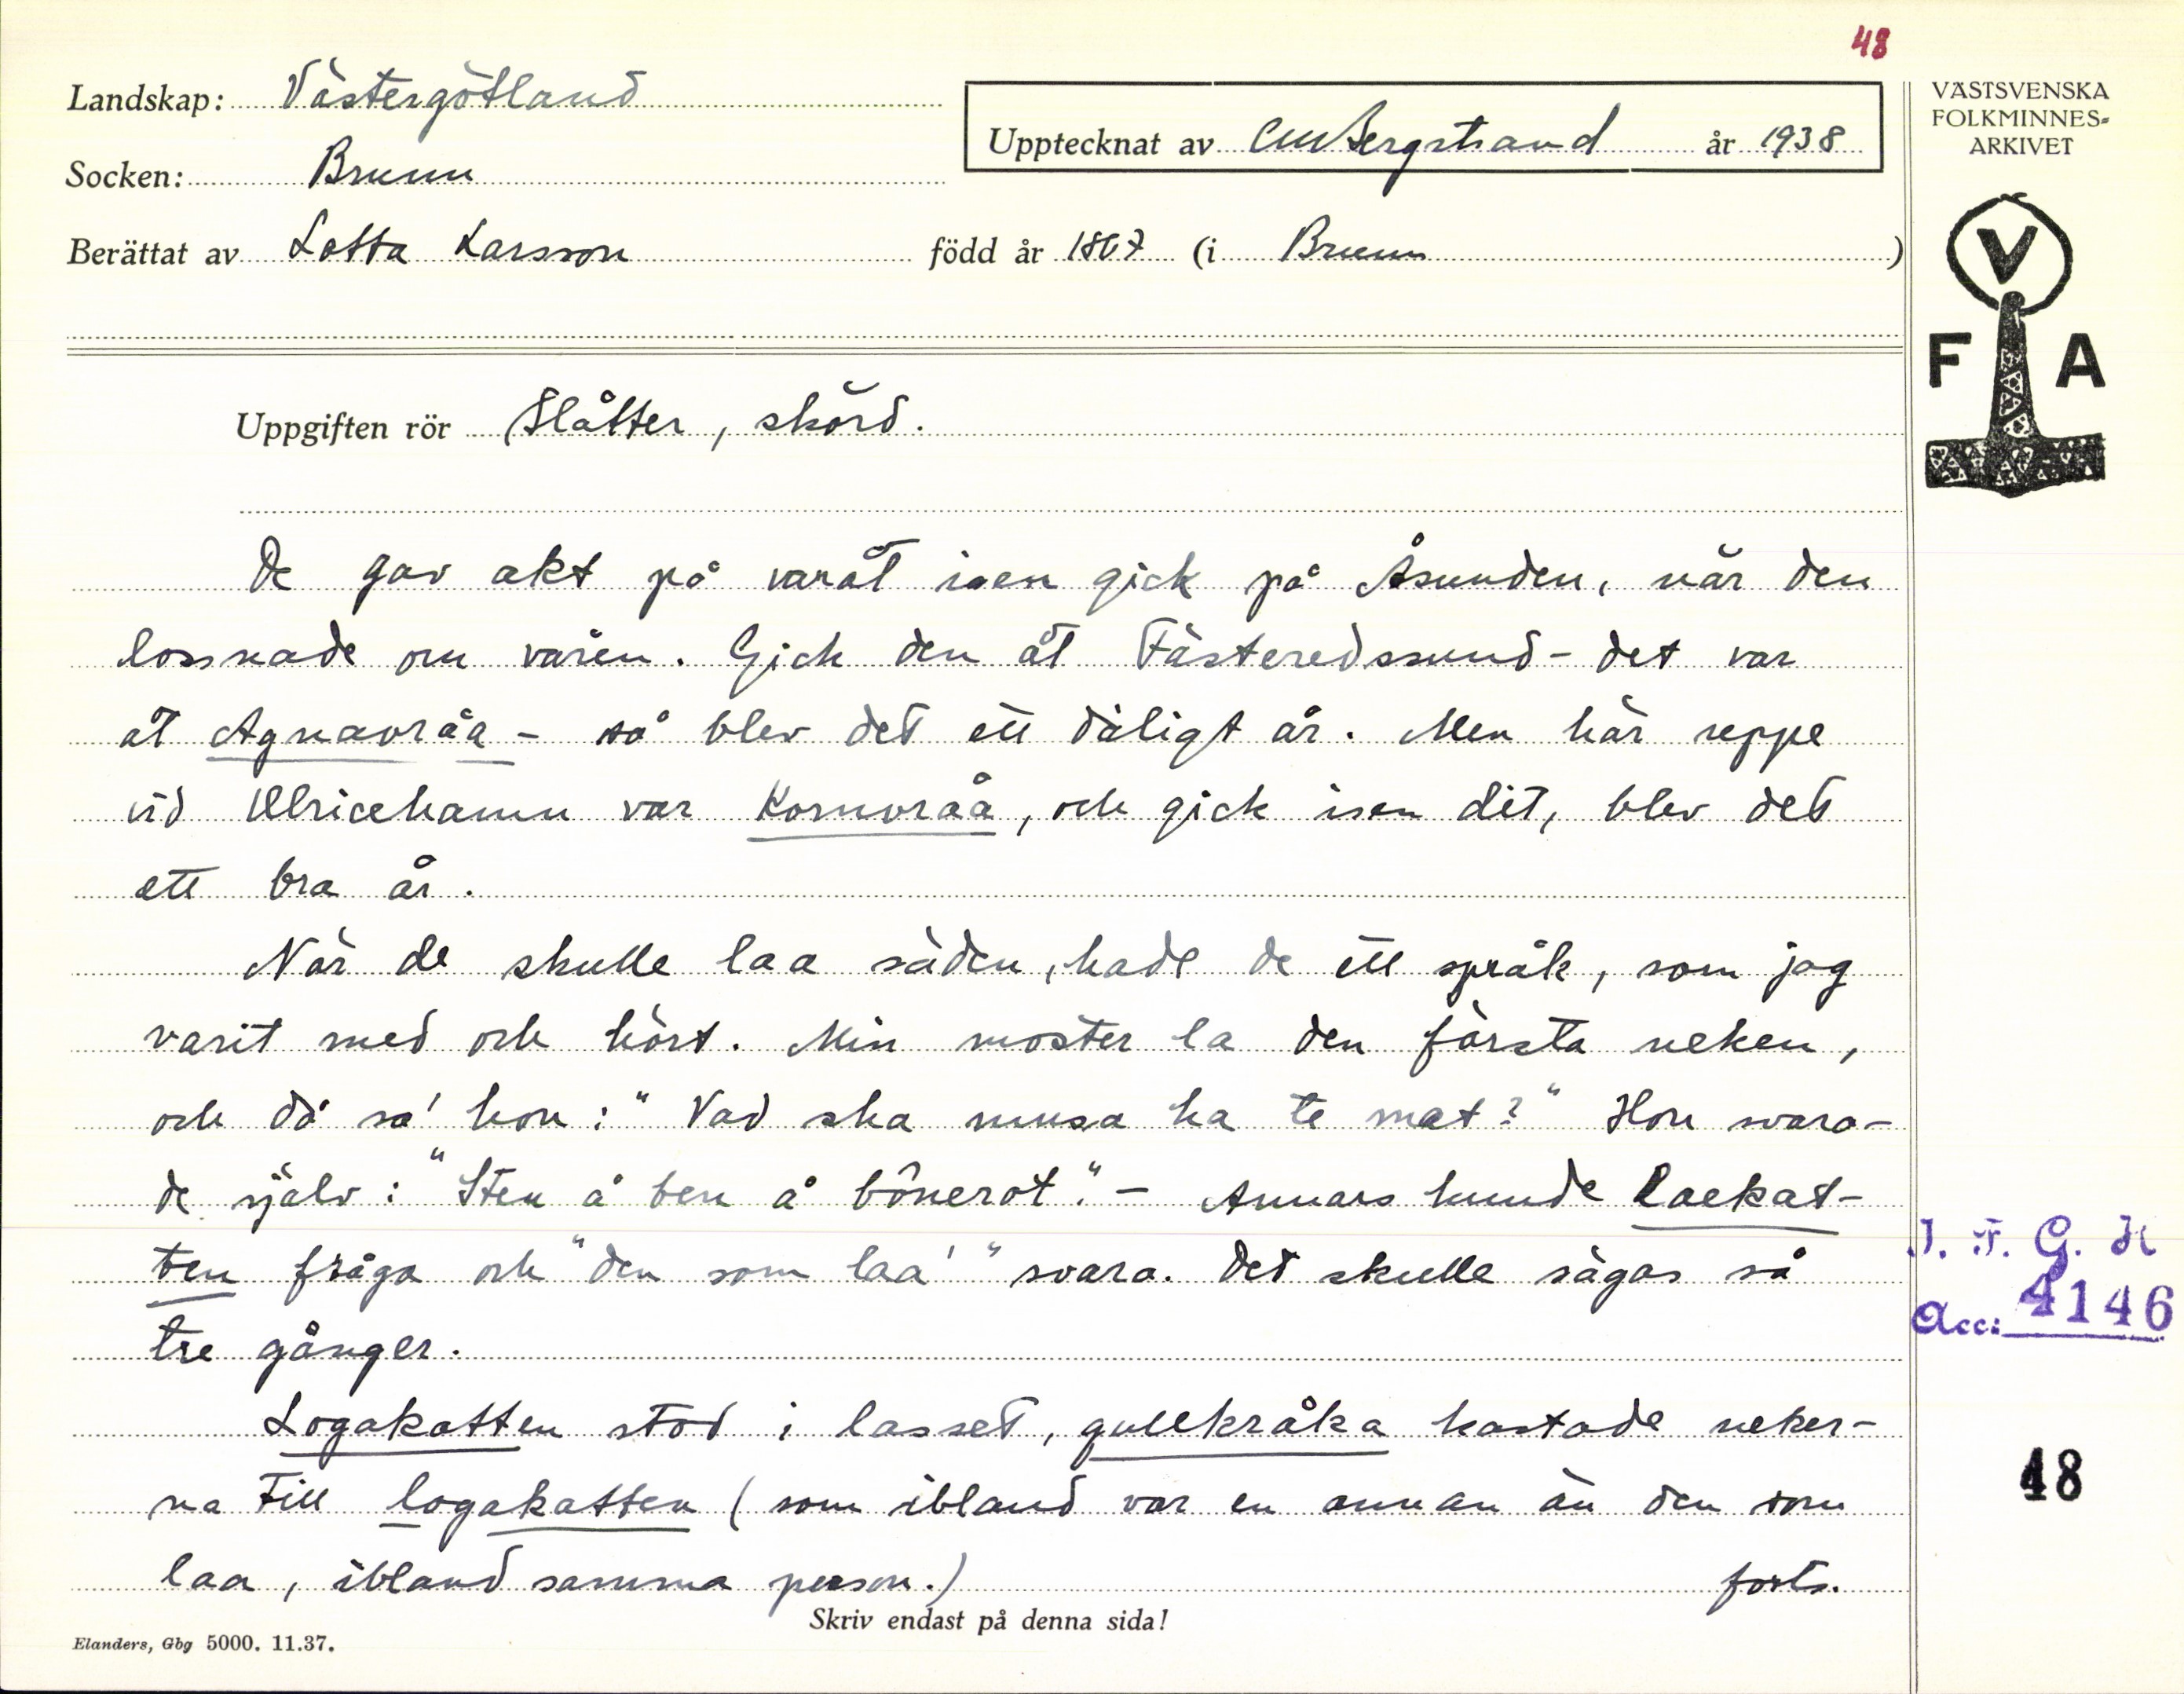 48
Landskap: Västergötland
Upptecknat av CMBergstrand år 1938
VÄSTSVENSKA
FOLKMINNES-
ARKIVET
Socken: Brunn
Berättat av Lotta Larsson född år 1867 (i Brunn )
V
F A
Uppgiften rör Slåtter, skörd.
De gav akt på varåt isen gick på Åsunden, när den
lossnade om våren. Gick den åt Fästeredssund - det var
åt Agnavråa - så blev det ett dåligt år. Men här uppe
vid Ulricehamn var Kornvråa, och gick isen dit, blev det
ett bra år.
När de skulle laa säden, hade de ett språk, som jag
varit med och hört. Min moster la den första neken,
och då sa' hon: "Vad ska musa ha te mat?" Hon svara-
de själv: "Sten å ben å bönerot." - Annars kunde Laekat-
ten fråga och "den som laa'" svara. Det skulle sägas så
tre gånger.
Logakatten stod i lasset, gullkråka kastade neker-
na till logakatten (som ibland var en annan än den som
laa, ibland samma person.) forts.
Skriv endast på denna sida!
Elanders, Gbg 5000. 11.37.
I. F. G. H
Acc: 4146
48